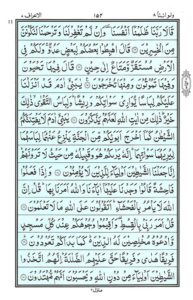 الاعراف ٧ ١٥٣ ولو اننا ٨
قَالَا رَبَّنَا ظَلَمْنَآ اَنْفُسَنَا وَاِنْ لَّمْ تَغْفِرْ لَنَا وَتَرْحَمْنَا لَنَكُوْنَنَّ
مِنَ الْخٰسِرِيْنَ قَالَ اهْبِطُوْا بَعْضُكُمْ لِبَعْضٍ عَدُوٌّ وَلَكُمْ فِى
الْاَرْضِ مُسْتَقَرٌّ وَّمَتَاعٌ اِلٰى حِيْنٍ قَالَ فِيْهَا تَحْيَوْنَ
وَفِيْهَا تَمُوْتُوْنَ وَمِنْهَا تُخْرَجُوْنَ يٰبَنِىْٓ اٰدَمَ قَدْ اَنْزَلْنَا
عَلَيْكُمْ لِبَاسًا يُّوَارِىْ سَوْاٰتِكُمْ وَرِيْشًا وَلِبَاسُ التَّقْوٰى ذٰلِكَ
خَيْرٌ ذٰلِكَ مِنْ اٰيٰتِ اللّٰهِ لَعَلَّهُمْ يَذَّكَّرُوْنَ يٰبَنِىْٓ اٰدَمَ لَا يَفْتِنَنَّكُمُ
الشَّيْطٰنُ كَمَآ اَخْرَجَ اَبَوَيْكُمْ مِّنَ الْجَنَّةِ يَنْزِعُ عَنْهُمَا لِبَاسَهُمَا
لِيُرِيَهُمَا سَوْاٰتِهِمَا اِنَّهٗ يَرٰىكُمْ هُوَ وَقَبِيْلُهٗ مِنْ حَيْثُ لَا تَرَوْنَهُمْ
اِنَّا جَعَلْنَا الشَّيٰطِيْنَ اَوْلِيَآءَ لِلَّذِيْنَ لَا يُؤْمِنُوْنَ وَاِذَا فَعَلُوْا
فَاحِشَةً قَالُوْا وَجَدْنَا عَلَيْهَآ اٰبَآءَنَا وَاللّٰهُ اَمَرَنَا بِهَا قُلْ اِنَّ
اللّٰهَ لَا يَاْمُرُ بِالْفَحْشَآءِ اَتَقُوْلُوْنَ عَلَى اللّٰهِ مَا لَا تَعْلَمُوْنَ
قُلْ اَمَرَ رَبِّىْ بِالْقِسْطِ وَاَقِيْمُوْا وُجُوْهَكُمْ عِنْدَ كُلِّ مَسْجِدٍ
وَّادْعُوْهُ مُخْلِصِيْنَ لَهُ الدِّيْنَ كَمَا بَدَاَكُمْ تَعُوْدُوْنَ
فَرِيْقًا هَدٰى وَفَرِيْقًا حَقَّ عَلَيْهِمُ الضَّلٰلَةُ اِنَّهُمُ اتَّخَذُوا
الشَّيٰطِيْنَ اَوْلِيَآءَ مِنْ دُوْنِ اللّٰهِ وَيَحْسَبُوْنَ اَنَّهُمْ مُّهْتَدُوْنَ
منزل ٢